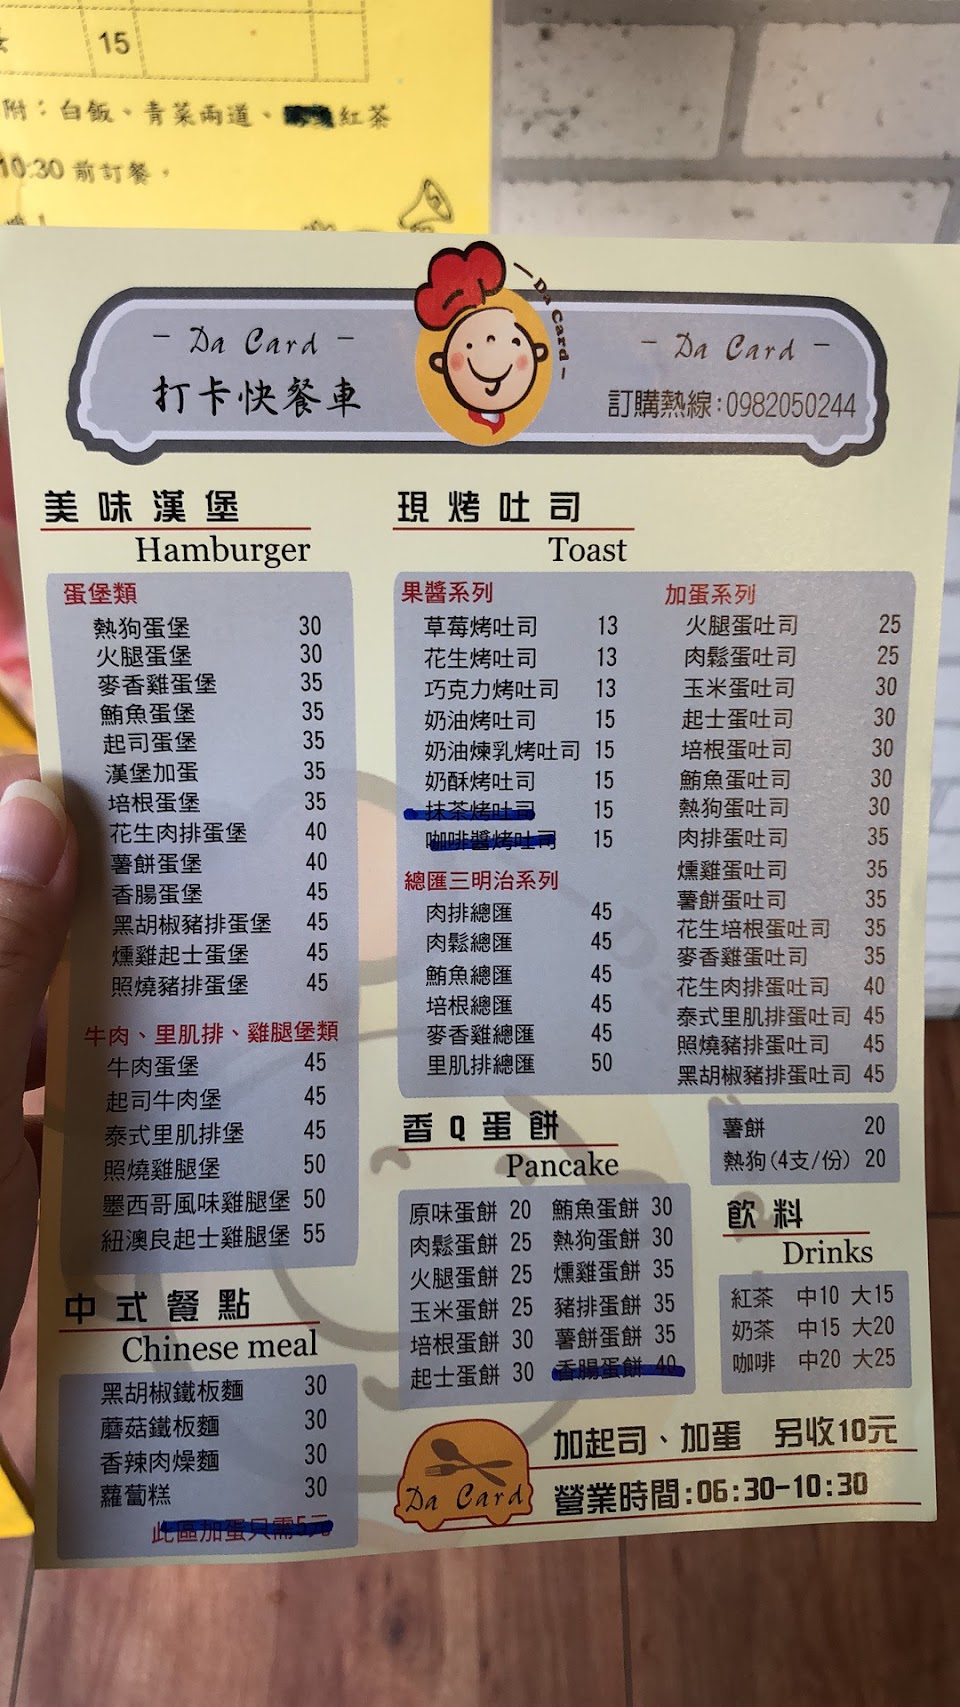 15
附：白飯、青菜兩道、紅茶
10:30 前訂餐，
Da Card
- Da Card -
打卡快餐車
- Da Card -
訂購熱線:0982050244
美味漢堡
Hamburger
蛋堡類
熱狗蛋堡 30
火腿蛋堡 30
麥香雞蛋堡 35
鮪魚蛋堡 35
起司蛋堡 35
漢堡加蛋 35
培根蛋堡 35
花生肉排蛋堡 40
薯餅蛋堡 40
香腸蛋堡 45
黑胡椒豬排蛋堡 45
燻雞起士蛋堡 45
照燒豬排蛋堡 45
牛肉、里肌排、雞腿堡類
牛肉蛋堡 45
起司牛肉堡 45
泰式里肌排堡 45
照燒雞腿堡 50
墨西哥風味雞腿堡 50
紐澳良起士雞腿堡 55
中式餐點
Chinese meal
黑胡椒鐵板麵 30
蘑菇鐵板麵 30
香辣肉燥麵 30
蘿蔔糕 30
此區加蛋只需5元
現烤吐司
Toast
果醬系列
草莓烤吐司 13
花生烤吐司 13
巧克力烤吐司 13
奶油烤吐司 15
奶油煉乳烤吐司 15
奶酥烤吐司 15
抹茶烤吐司 15
咖啡醬烤吐司 15
總匯三明治系列
肉排總匯 45
肉鬆總匯 45
鮪魚總匯 45
培根總匯 45
麥香雞總匯 45
里肌排總匯 50
加蛋系列
火腿蛋吐司 25
肉鬆蛋吐司 25
玉米蛋吐司 30
起士蛋吐司 30
培根蛋吐司 30
鮪魚蛋吐司 30
熱狗蛋吐司 30
肉排蛋吐司 35
燻雞蛋吐司 35
薯餅蛋吐司 35
花生培根蛋吐司 35
麥香雞蛋吐司 35
花生肉排蛋吐司 40
泰式里肌排蛋吐司 45
照燒豬排蛋吐司 45
黑胡椒豬排蛋吐司 45
香Q蛋餅
Pancake
原味蛋餅 20 鮪魚蛋餅 30
肉鬆蛋餅 25 熱狗蛋餅 30
火腿蛋餅 25 燻雞蛋餅 35
玉米蛋餅 25 豬排蛋餅 35
培根蛋餅 30 薯餅蛋餅 35
起士蛋餅 30 香腸蛋餅 40
薯餅 20
熱狗(4支/份) 20
飲料
Drinks
紅茶 中10 大15
奶茶 中15 大20
咖啡 中20 大25
Da Card
加起司、加蛋 另收10元
營業時間:06:30-10:30